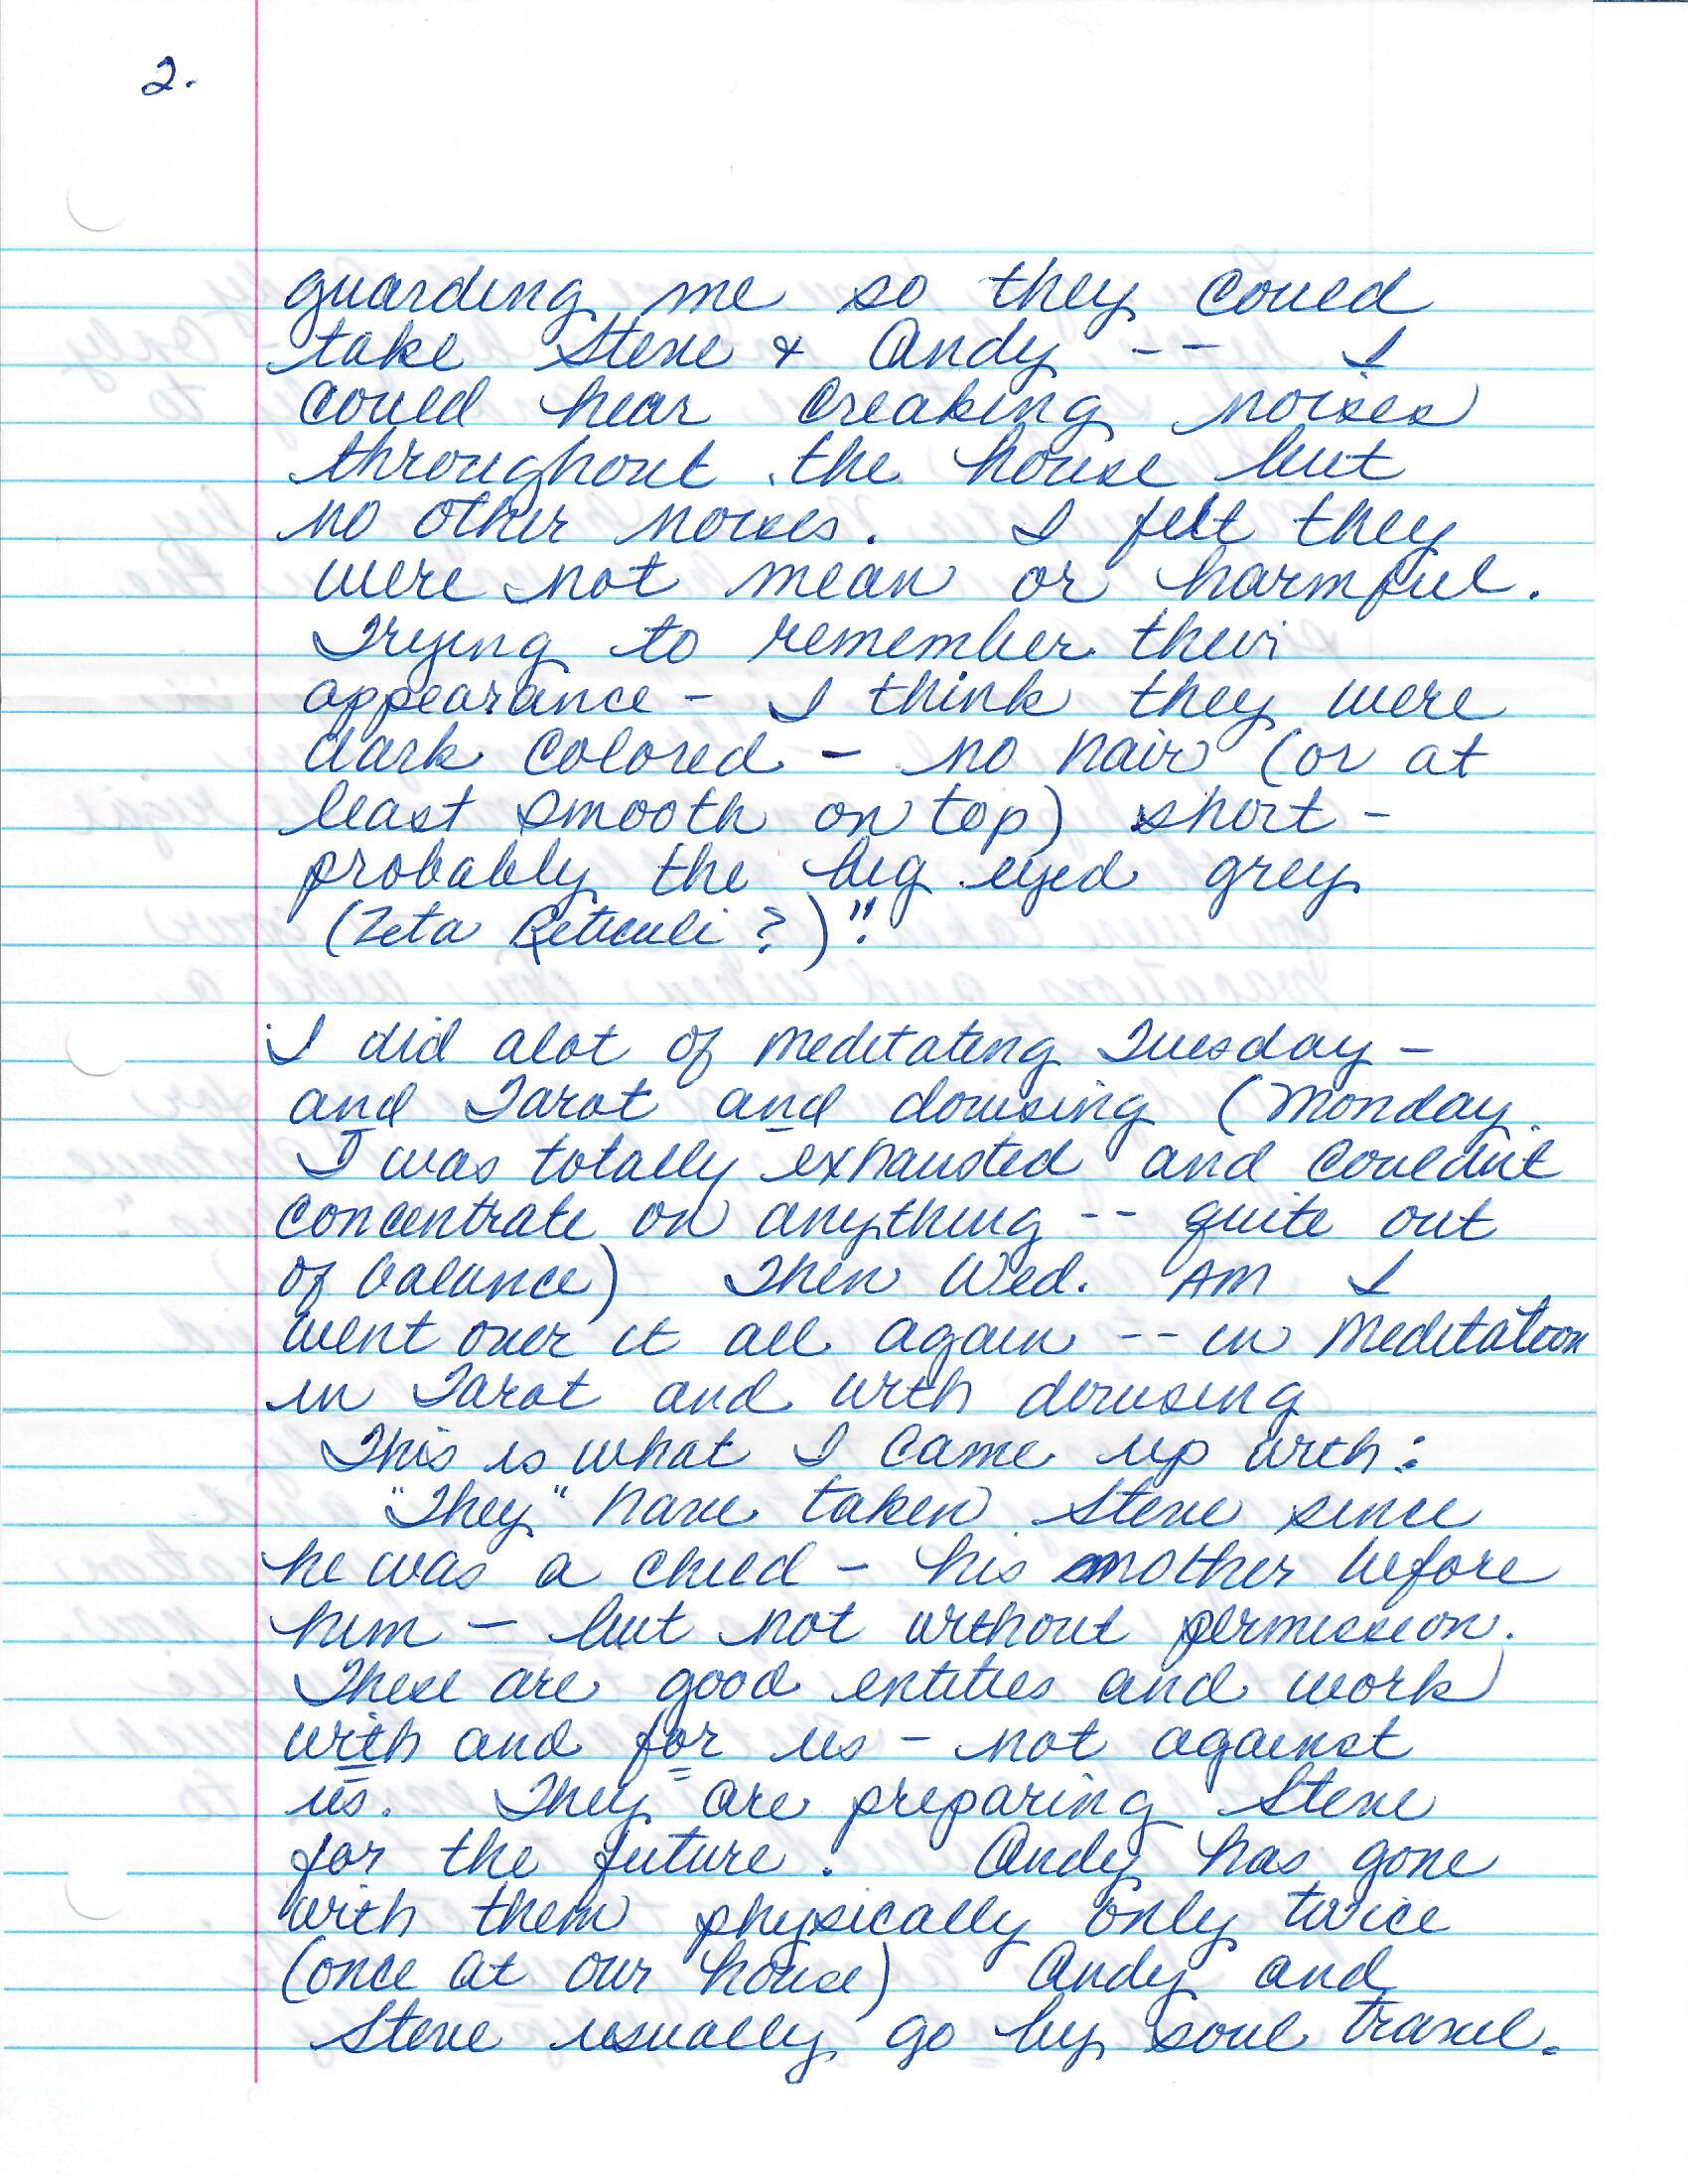 2.
guarding me so they could
take Steve & Andy -- I
could hear creaking noises
throughout the house but
no other noises. I felt they
were not mean or harmful.
Trying to remember their
appearance - I think they were
dark colored - no hair (or at
least smooth on top) short -
probably the big eyed grey
(Zeta Reticuli?)".
I did alot of meditating Tuesday -
and Tarot and dowsing (Monday
I was totally exhausted and couldn't
concentrate on anything -- quite out
of balance) Then Wed. AM I
went over it all again -- in meditation
in Tarot and with dowsing
This is what I came up with:
"They" have taken Steve since
he was a child - his mother before
him - but not without permission.
These are good entities and work
with and for us - not against
us. They are preparing Steve
for the future. Andy has gone
with them physically only twice
(once at our house) Andy and
Steve usually go by soul travel.